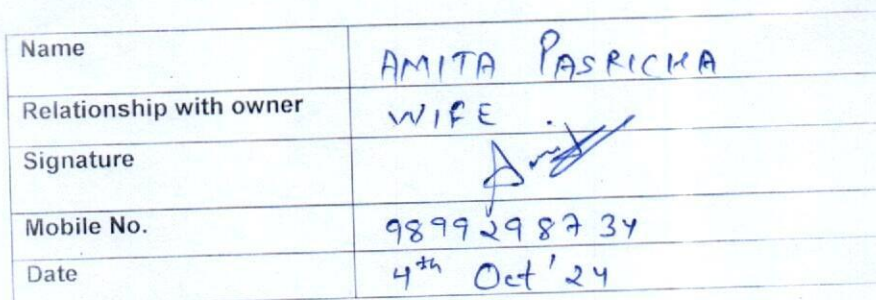 Name AMITA PASRICHA
Relationship with owner WIFE
Signature
Mobile No. 9899298734
Date 4th Oct '24